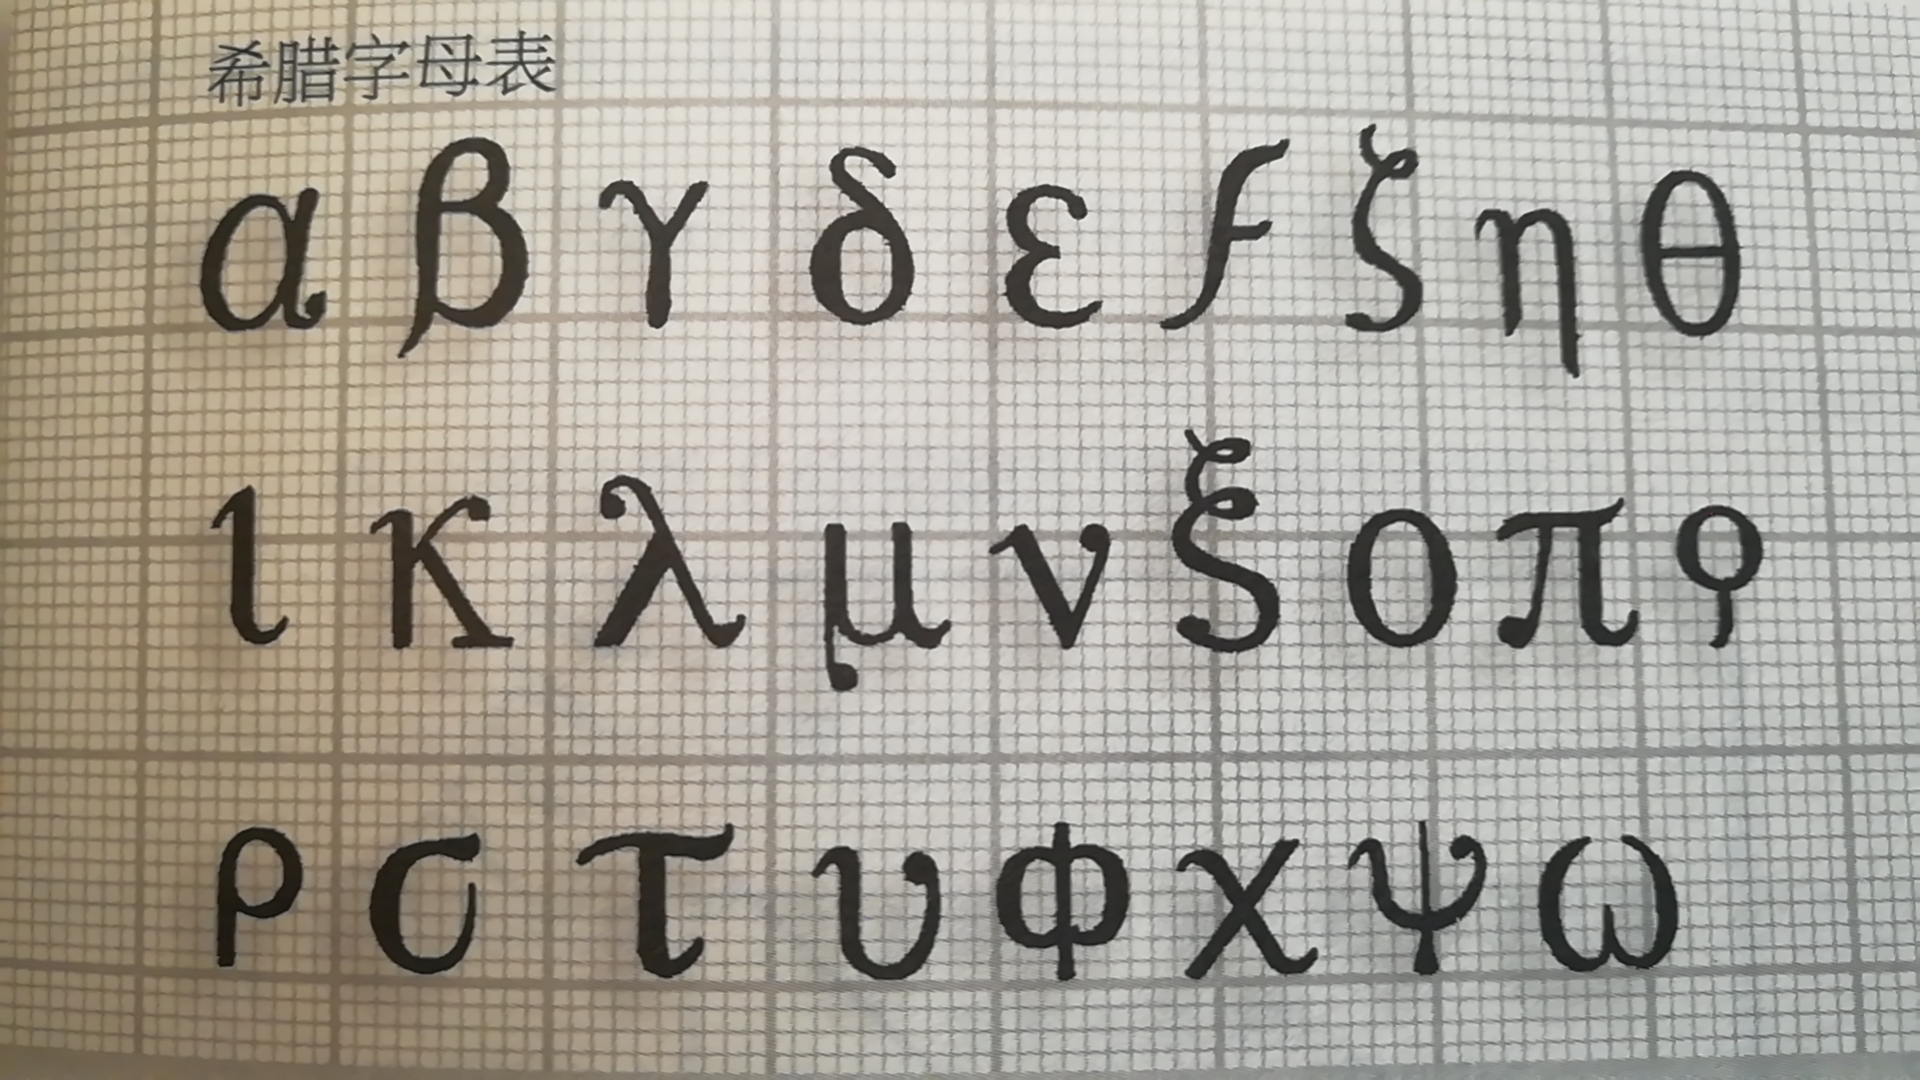 希腊字母表
α β γ δ ε ϝ ζ η θ
ι κ λ μ ν ξ ο π ϙ
ρ σ τ υ φ χ ψ ω